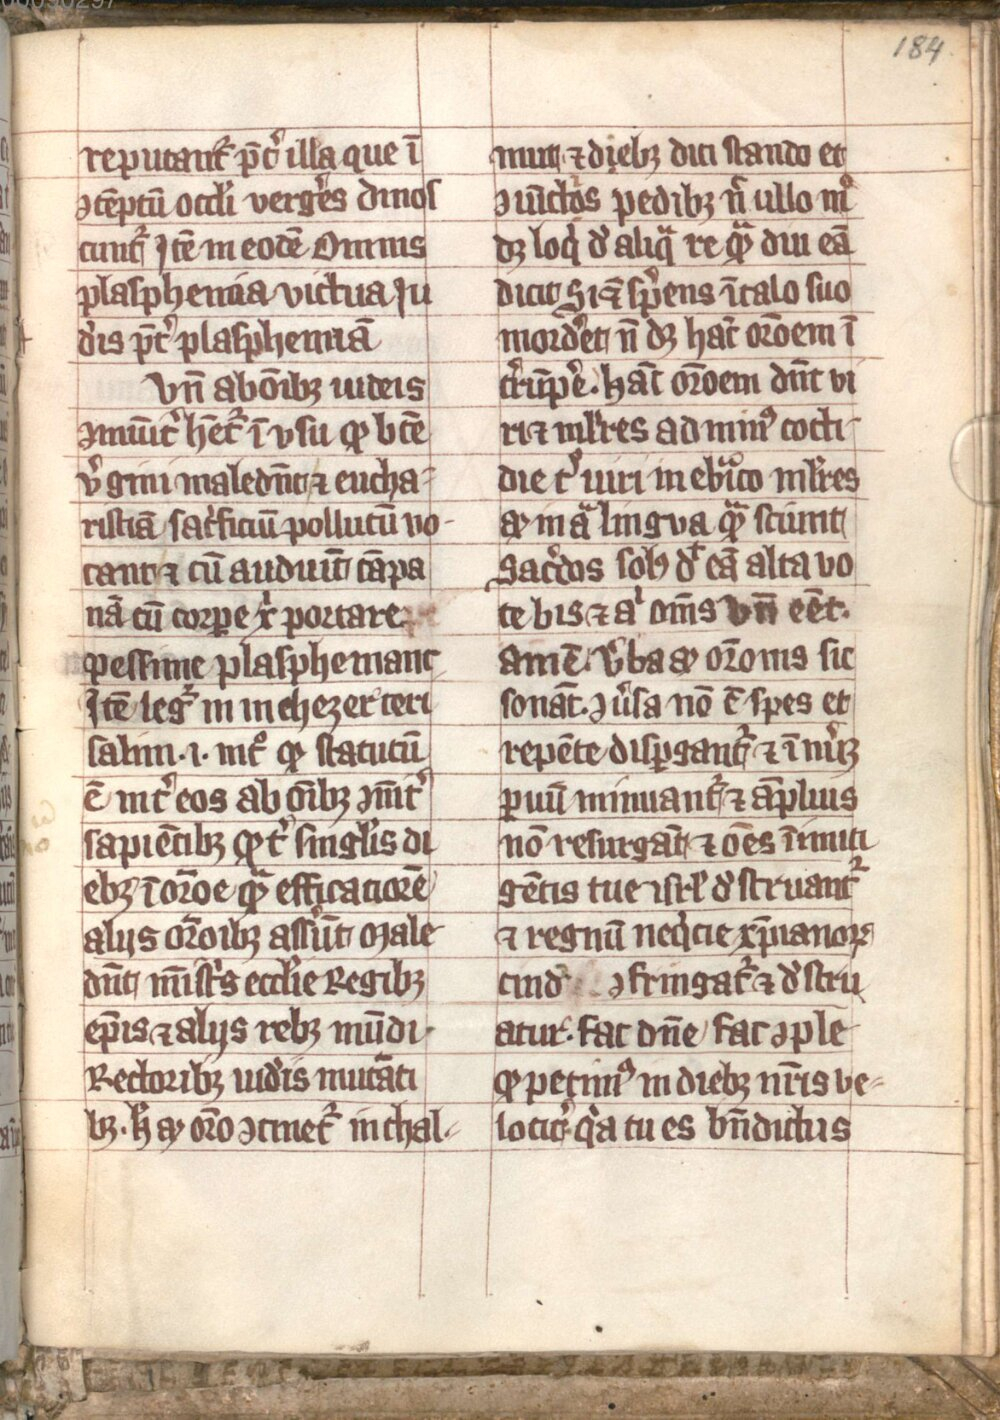 184
reputant᷑ p̄t᷑ illa que ī
ꝯtēptū occl̄i verge᷑s dinos
cunt᷑ Itē in eodē Omnis
plasphemia victua Iu
d᷑is p̄t᷑ plasphemiā
Vn̄ ab oībꝫ iudeis
ꝯmuīt᷑ hēt᷑ ī vsu ꝙ bt̄e
v᷑gini maledn̄t ⁊ eucha-
ristiā sac᷑ficiū pollutū vo-
cant ⁊ cū audiūt cāpa
nā cū corpe xͥ portare
pessime plasphemant
Itē leg᷑ in mchezer teri
salim .i. mt᷑ ꝙ statutū
ē int᷑ eos ab oībꝫ ꝯmīt᷑
sapiētibꝫ ꝙ t᷑ singl̄is di
ebꝫ ī oroē qͣ efficatiorē
alijs oroībꝫ assūt Male
dn̄t mīst᷑s eccl̄ie Regibꝫ
ep̄is ⁊ alijs rebꝫ mūdi
Rectoribꝫ iud᷑is mutāti
bꝫ. h̄ ꝙ oro ꝯtinet᷑ in chal-
mut ⁊ diebꝫ dici stando et
ꝯiūct᷑s pedibꝫ n̄ ullo mͦ
dꝫ loqͥ d᷑ aliqͣ re qͣ diu eā
dicit Si ⁊ sp̄ens ī talo suo
mord᷑et n̄ dꝫ hac̄ oroem ī
t᷑rūp᷑e. hāc oroem dn̄t vi
ri ⁊ mlr̄es ad minꝰ coti-
die t᷑ viri in ebͣico mlr̄es
ꝙ in aͣ lingva qͣ sciunt
Sac᷑dos solꝫ d᷑ eā alta vo
ce bis ⁊ aͥ om̄s vn̄ eēt.
amē. v᷑ba ꝙ orōnis sic
sonāt. ꝯv᷑sa nō ē spes et
repēte disp̱gant᷑ ⁊ īnīꝫ
p̱uū minuant᷑ ⁊ āplius
nō resurgāt ⁊ oēs īimici
gētis tue isrl̄ d᷑struant᷑
⁊ regnū neqͥcie xp̄ianoꝝ
cind ꝯfringat᷑ ⁊ d᷑stru
atur. fac dn̄e fac ꝯple
ꝙ petimꝰ in diebꝫ nr̄is ve-
locit᷑ qͥa tu es bn̄dictus